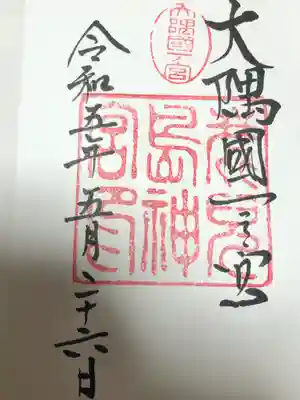 大隅國一之宮
大隅國一宮
鹿兒
島神
宮印
令和五年五月二十六日